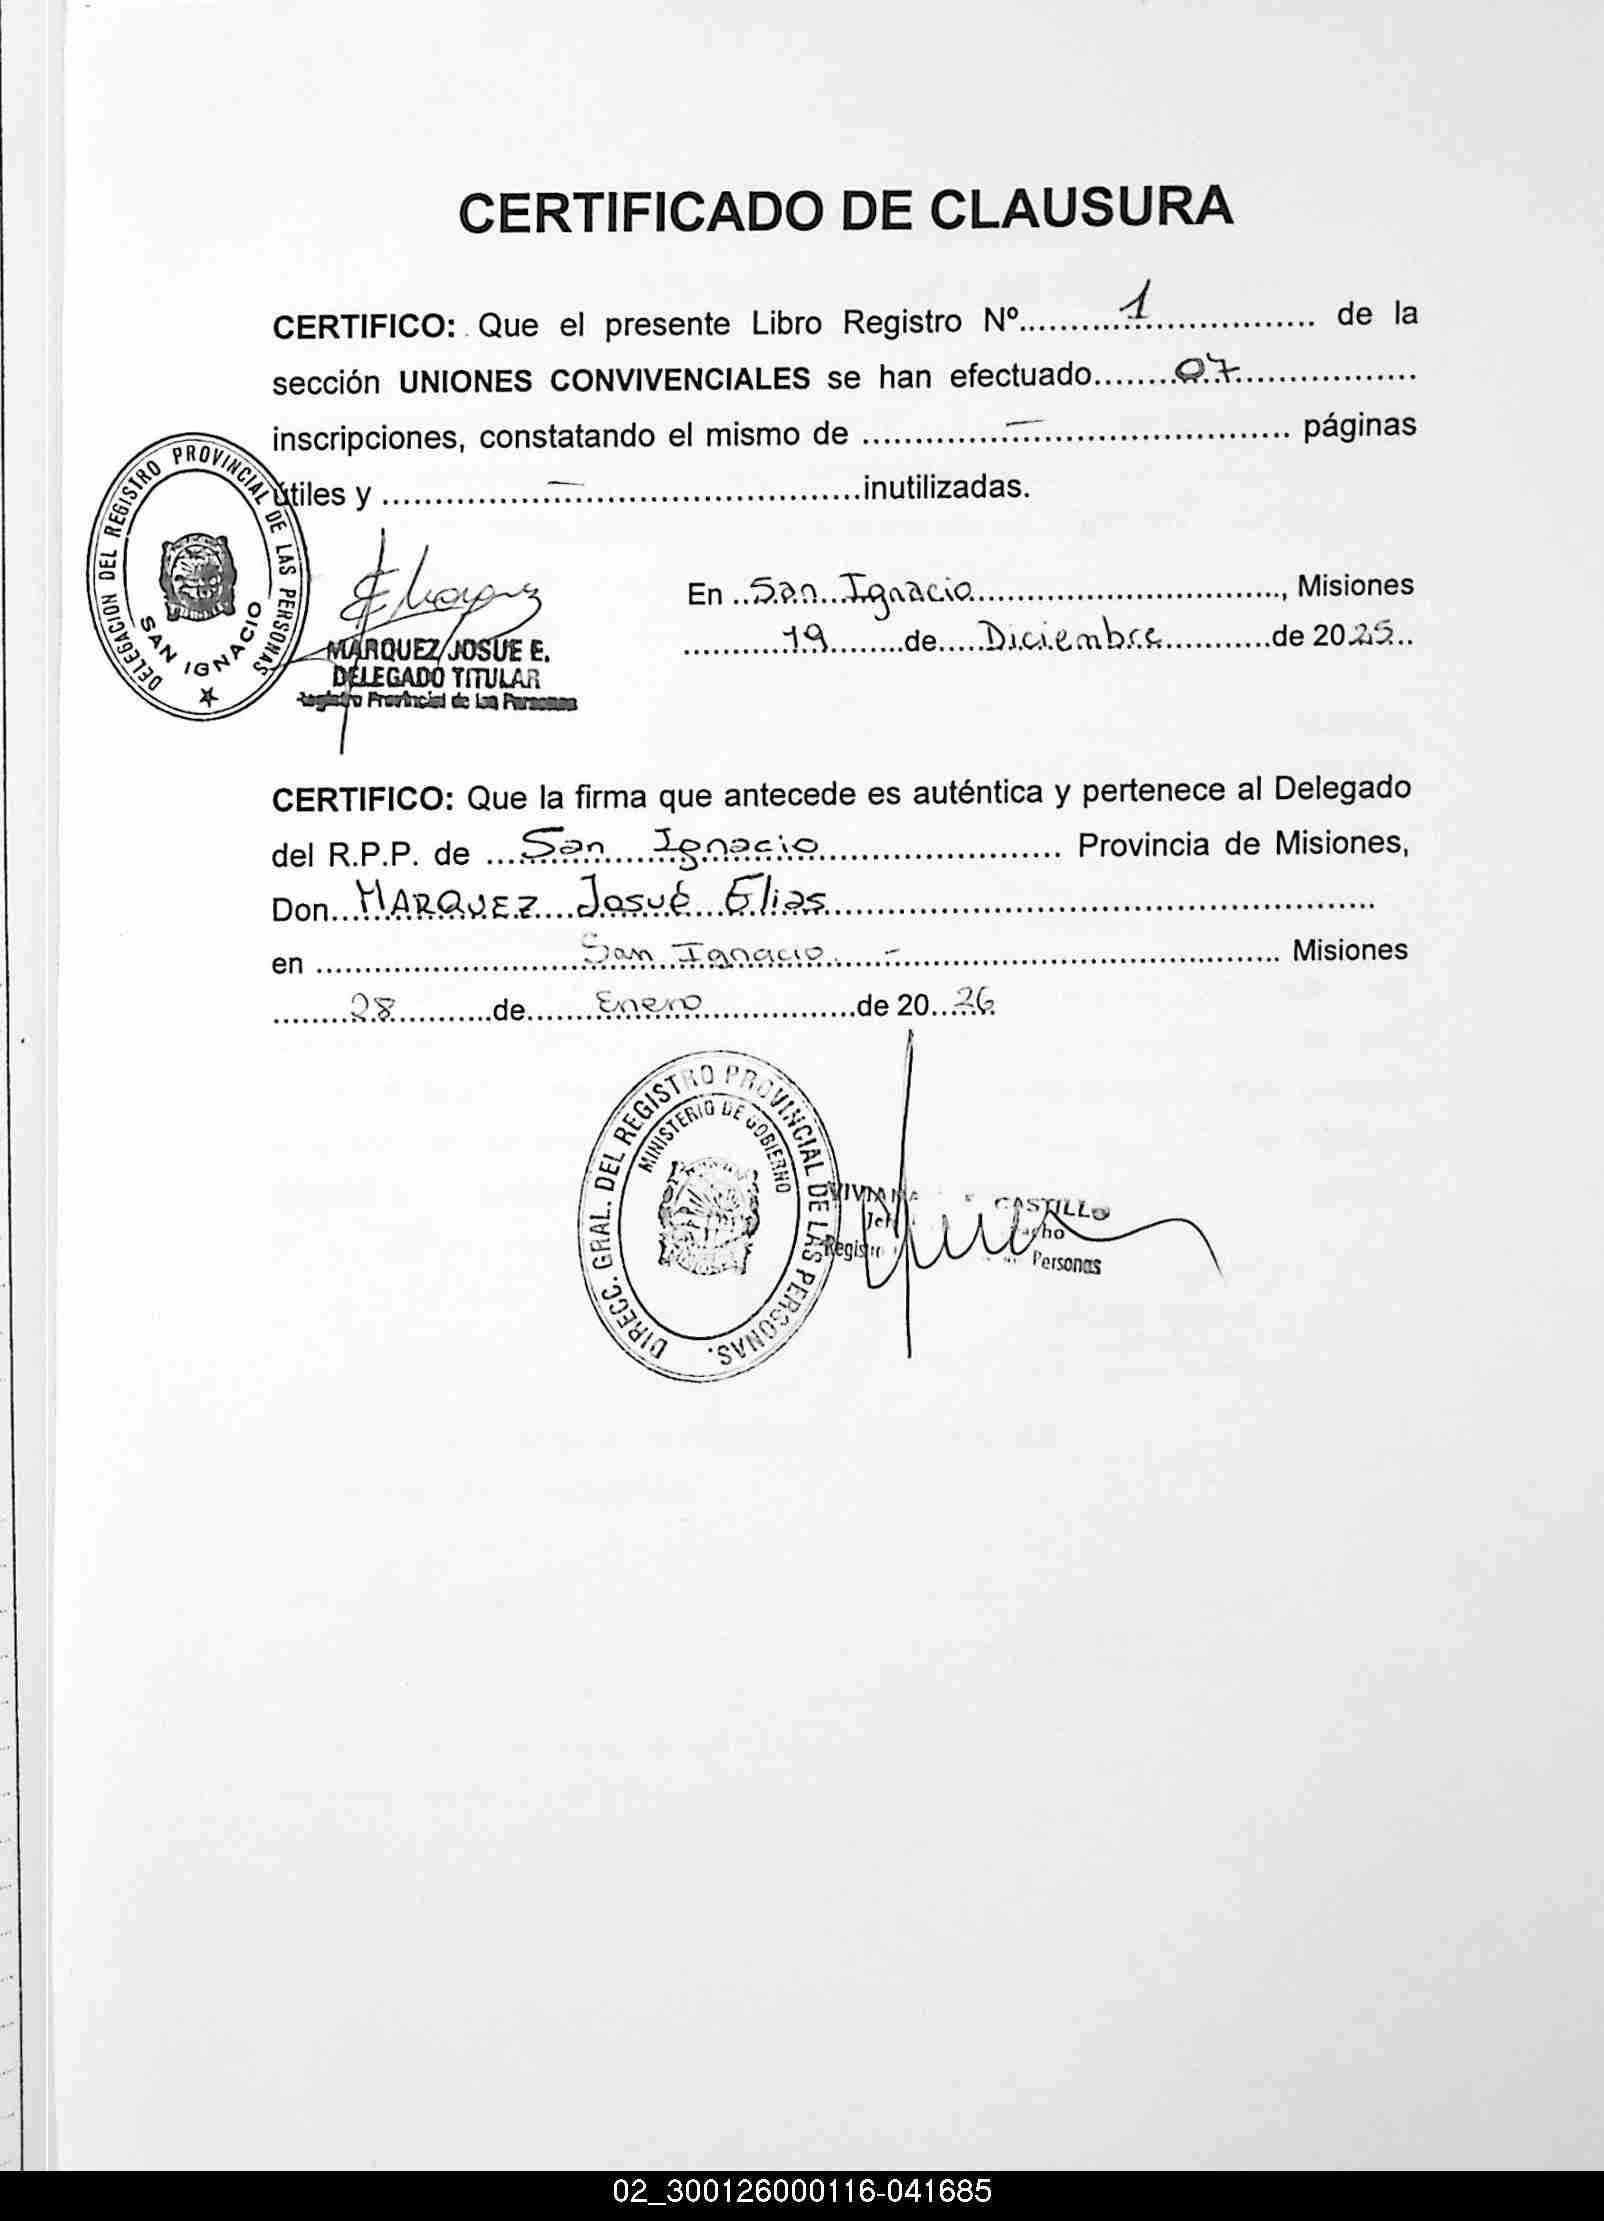 CERTIFICADO DE CLAUSURA
CERTIFICO: Que el presente Libro Registro Nº..........1.......... de la
sección UNIONES CONVIVENCIALES se han efectuado........07..........
inscripciones, constatando el mismo de ..........—.......... páginas
útiles y ..........—..........inutilizadas.
DELEGACION DEL REGISTRO PROVINCIAL DE LAS PERSONAS
SAN IGNACIO
MARQUEZ JOSUE E.
DELEGADO TITULAR
Registro Provincial de Las Personas
En ..San Ignacio.........., Misiones
..........19........de.....Diciembre..........de 2025..
CERTIFICO: Que la firma que antecede es auténtica y pertenece al Delegado
del R.P.P. de ....San Ignacio.......... Provincia de Misiones,
Don...MARQUEZ Josué Elias..........
en ..........San Ignacio.-.......... Misiones
........28..........de.......Enero..........de 20..26
DIRECC. GRAL. DEL REGISTRO PROVINCIAL DE LAS PERSONAS.
MINISTERIO DE GOBIERNO
CASTILLO
Personas
02_300126000116-041685